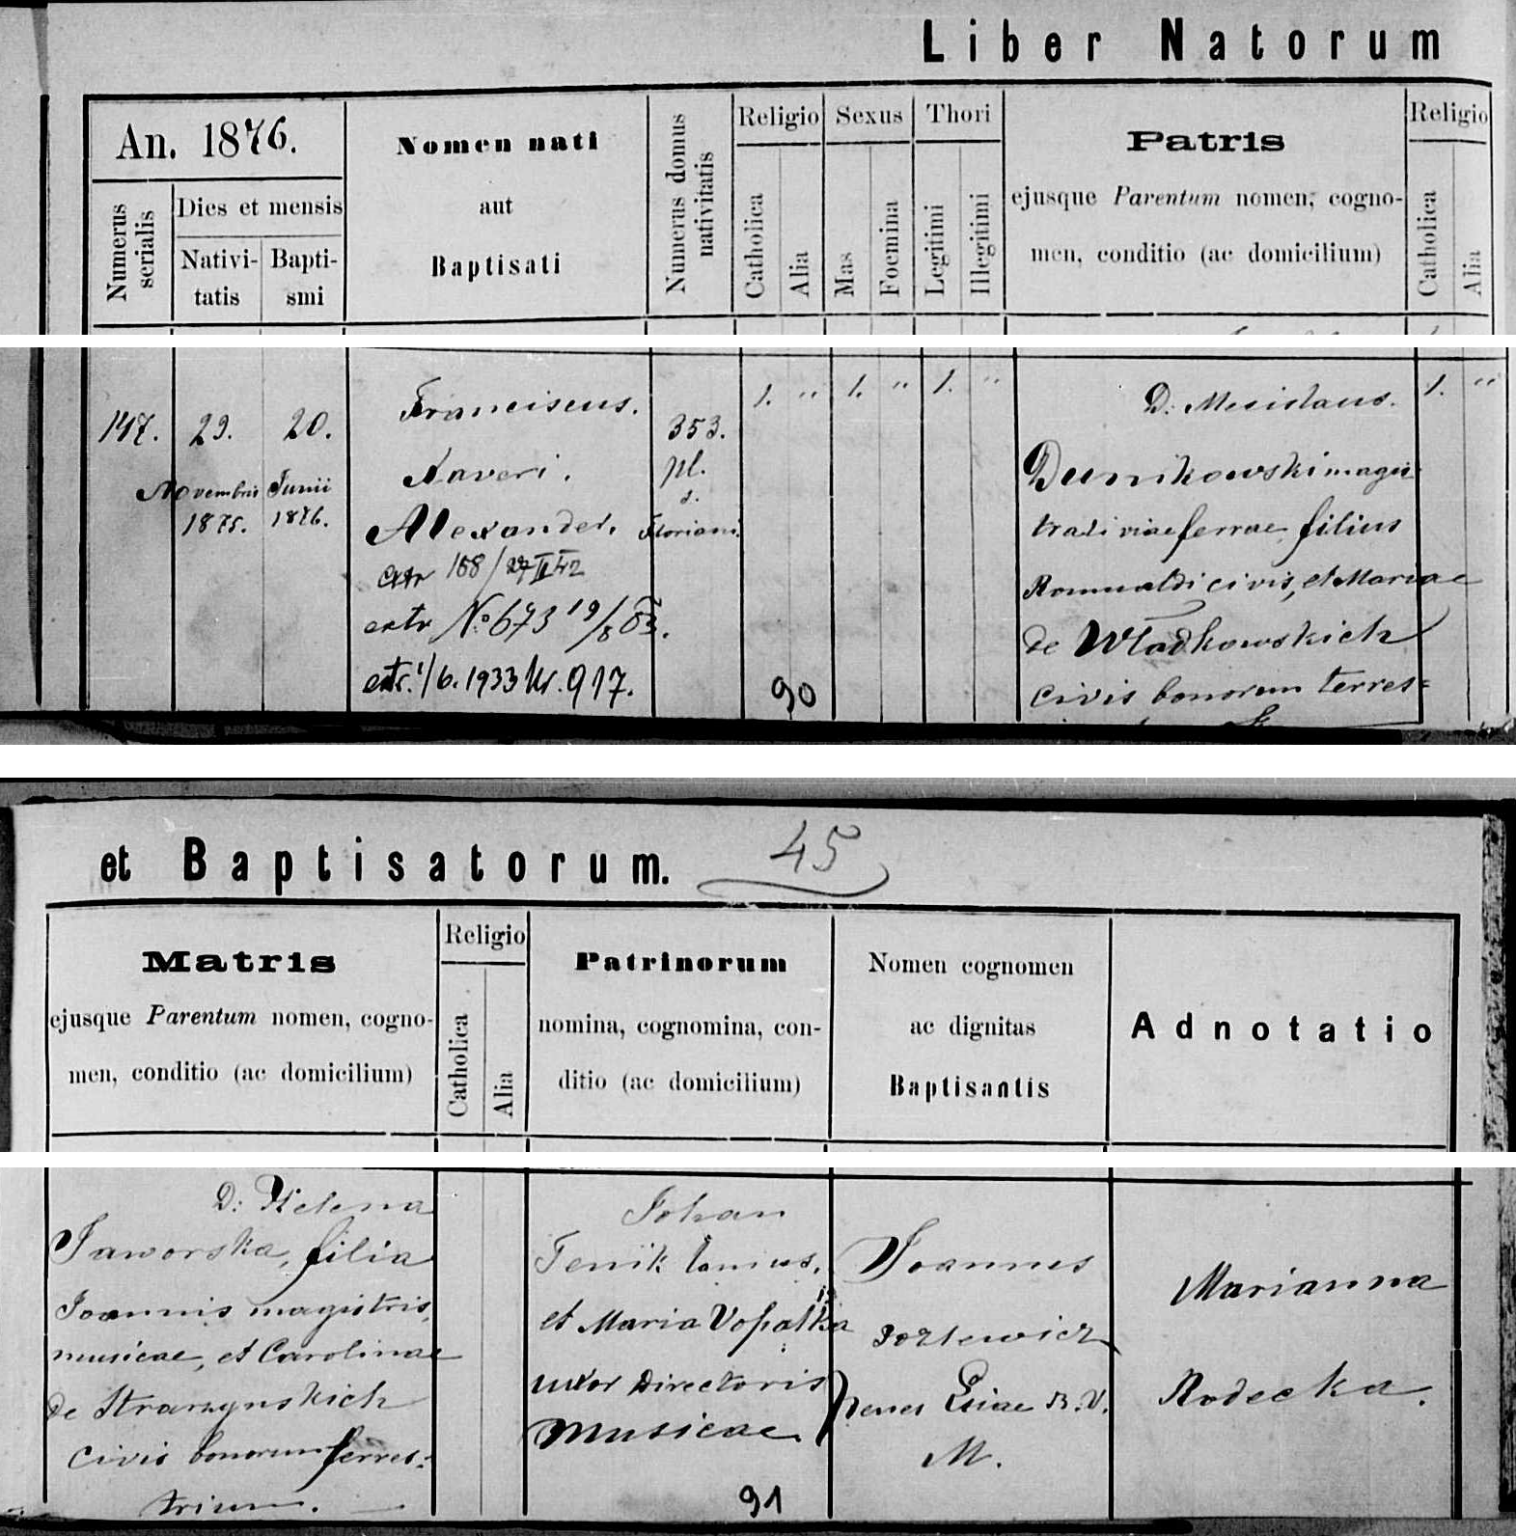 Liber Natorum
An. 1876.
Numerus serialis
Dies et mensis
Nativi-
tatis
Bapti-
smi
Nomen nati
aut
Baptisati
Numerus domus
nativitatis
Religio
Catholica
Alia
Sexus
Mas
Foemina
Thori
Legitimi
Illegitimi
Patris
ejusque Parentum nomen, cogno-
men, conditio (ac domicilium)
Religio
Catholica
Alia
147.
29.
Novembris
1875.
20.
Junii
1876.
Franciscus.
Xaveri.
Alexander.
extr 168/27 II 42
extr No 673 19/8 03.
extr. 1/6. 1933 Nr. 917.
353.
pl.
s.
Floriani.
1. "
1. "
1. "
D. Mecislaus.
Dunikowski magis-
trati viae ferrae filius
Romualdi civis, et Mariae
de Wladkowskich
civis bonorum terres=
1. "
90
et Baptisatorum.
45
Matris
ejusque Parentum nomen, cogno-
men, conditio (ac domicilium)
Religio
Catholica
Alia
Patrinorum
nomina, cognomina, con-
ditio (ac domicilium)
Nomen cognomen
ac dignitas
Baptisantis
Adnotatio
D: Helena
Jaworska, filia
Joannis magistris,
musicae, et Carolinae
de
civis bonorum terres:
trium.
Johan
Fenik
et Maria Vopalka
uxor Directoris
musicae
Joannes
penes B. V.
M.
Marianna
Rodecka.
91